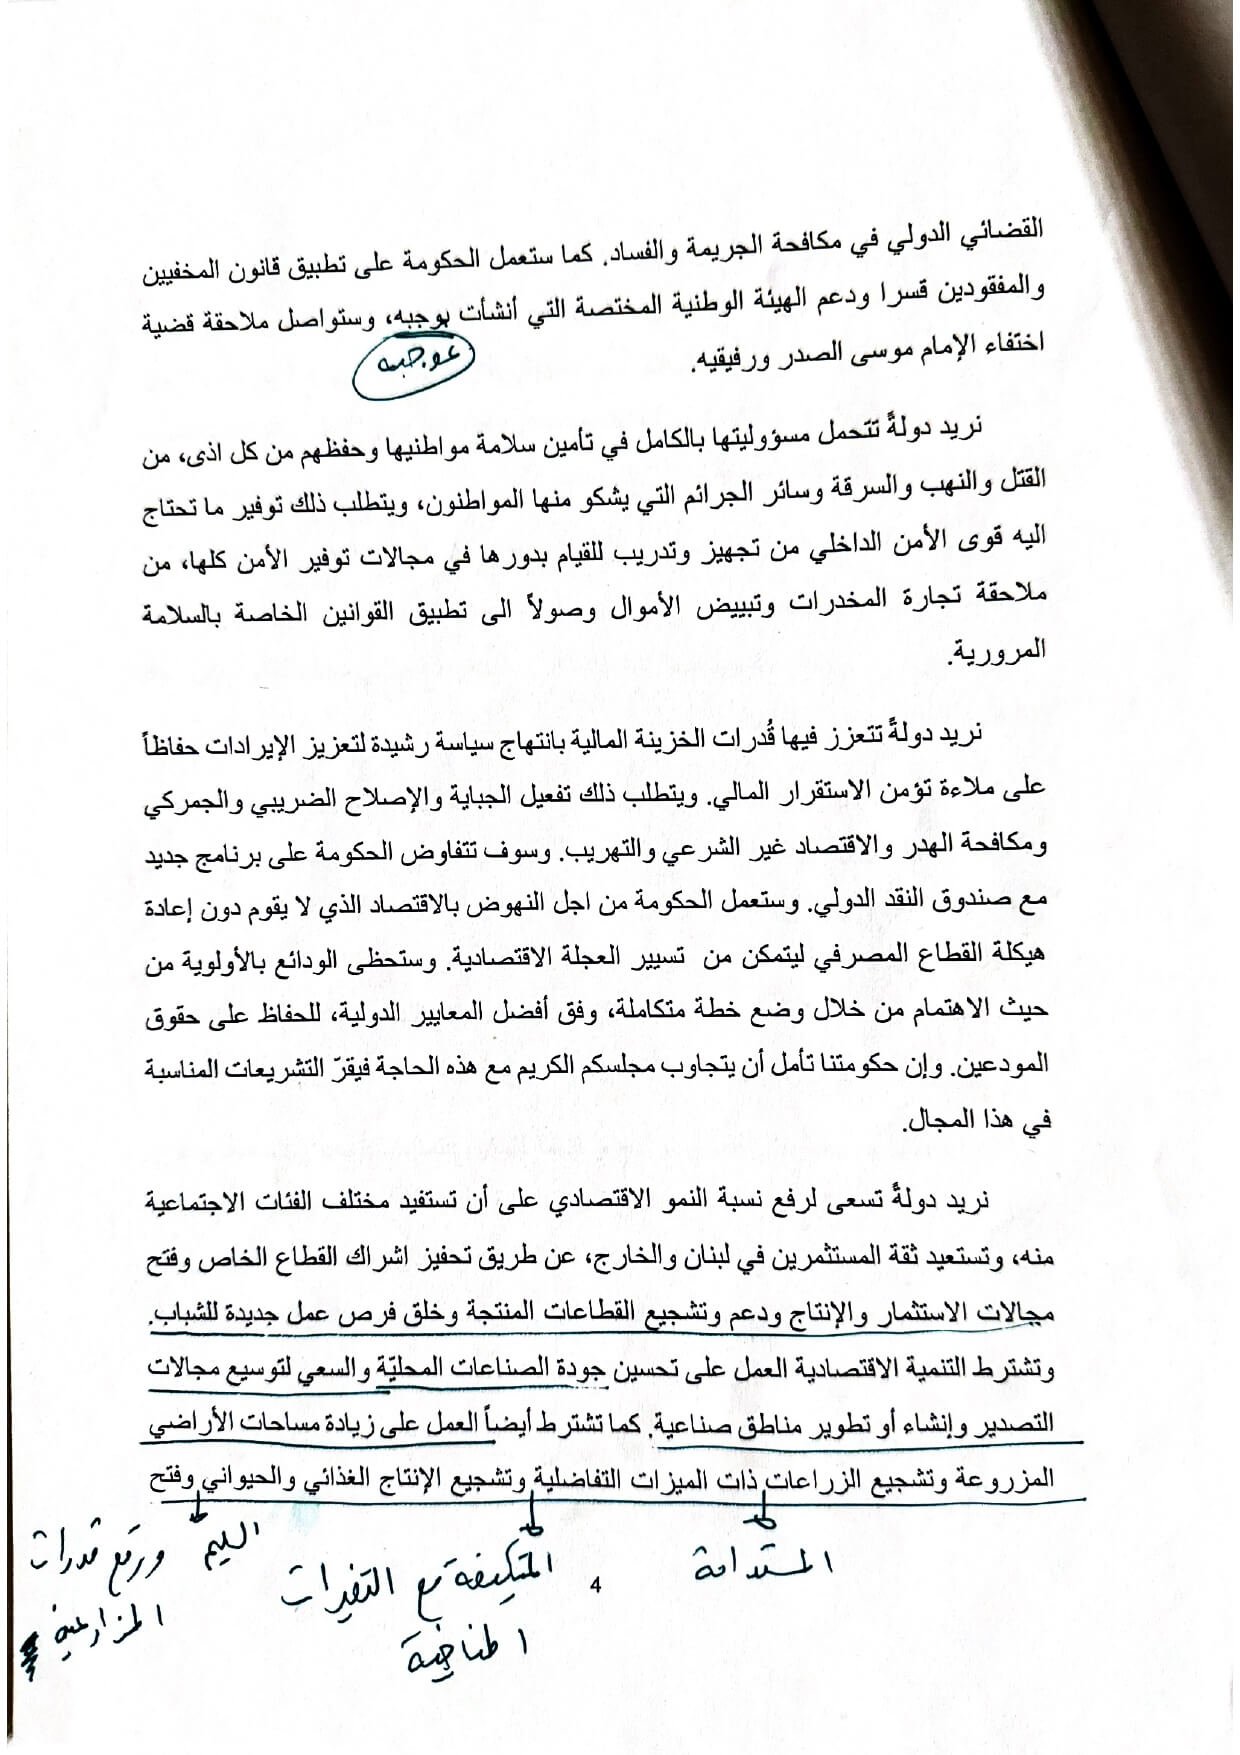 القضائي الدولي في مكافحة الجريمة والفساد. كما ستعمل الحكومة على تطبيق قانون المخفيين
والمفقودين قسرا ودعم الهيئة الوطنية المختصة التي أنشأت بوجبه، وستواصل ملاحقة قضية
اختفاء الإمام موسى الصدر ورفيقيه.
بموجبه
نريد دولةً تتحمل مسؤوليتها بالكامل في تأمين سلامة مواطنيها وحفظهم من كل اذى، من
القتل والنهب والسرقة وسائر الجرائم التي يشكو منها المواطنون، ويتطلب ذلك توفير ما تحتاج
اليه قوى الأمن الداخلي من تجهيز وتدريب للقيام بدورها في مجالات توفير الأمن كلها، من
ملاحقة تجارة المخدرات وتبييض الأموال وصولاً الى تطبيق القوانين الخاصة بالسلامة
المرورية.
نريد دولةً تتعزز فيها قُدرات الخزينة المالية بانتهاج سياسة رشيدة لتعزيز الإيرادات حفاظاً
على ملاءة تؤمن الاستقرار المالي. ويتطلب ذلك تفعيل الجباية والإصلاح الضريبي والجمركي
ومكافحة الهدر والاقتصاد غير الشرعي والتهريب. وسوف تتفاوض الحكومة على برنامج جديد
مع صندوق النقد الدولي. وستعمل الحكومة من اجل النهوض بالاقتصاد الذي لا يقوم دون إعادة
هيكلة القطاع المصرفي ليتمكن من تسيير العجلة الاقتصادية. وستحظى الودائع بالأولوية من
حيث الاهتمام من خلال وضع خطة متكاملة، وفق أفضل المعايير الدولية، للحفاظ على حقوق
المودعين. وإن حكومتنا تأمل أن يتجاوب مجلسكم الكريم مع هذه الحاجة فيقرّ التشريعات المناسبة
في هذا المجال.
نريد دولةً تسعى لرفع نسبة النمو الاقتصادي على أن تستفيد مختلف الفئات الاجتماعية
منه، وتستعيد ثقة المستثمرين في لبنان والخارج، عن طريق تحفيز اشراك القطاع الخاص وفتح
مجالات الاستثمار والإنتاج ودعم وتشجيع القطاعات المنتجة وخلق فرص عمل جديدة للشباب.
وتشترط التنمية الاقتصادية العمل على تحسين جودة الصناعات المحليّة والسعي لتوسيع مجالات
التصدير وإنشاء أو تطوير مناطق صناعية. كما تشترط أيضاً العمل على زيادة مساحات الأراضي
المزروعة وتشجيع الزراعات ذات الميزات التفاضلية وتشجيع الإنتاج الغذائي والحيواني وفتح
المستدامة
المتكيفة مع التغيرات
المناخية
السليم ورفع قدرات
المزارعين
4